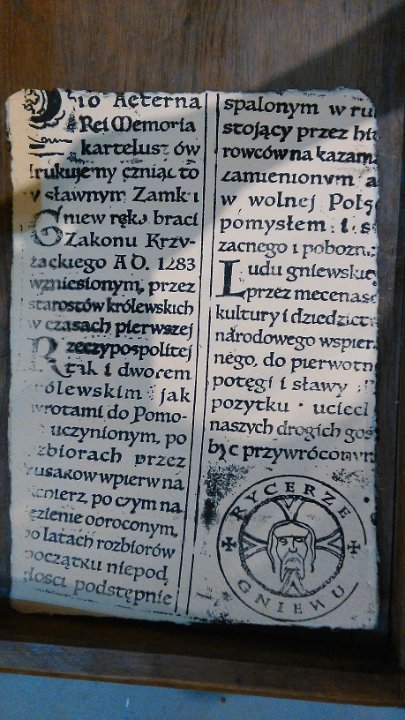 Aeterna
Rei Memoria
kartelusz ów
rukujemy czniąc to
w sławnym Zamku
Gniew ręką braci
Zakonu Krzy-
żackiego A D. 1283
wzniesionym, przez
starostów królewskich
w czasach pierwszej
Rzeczypospolitej
tak i dworem
ólewskim jak
wrotami do Pomo-
uczynionym, po
zbiorach przez
rusaków wpierw na
po czym na
ęzienie obroconym,
po latach rozbiorów
początku niepod
głości podstępnie
spalonym w ru
stojący przez hit
rowców na kazam
zamienionym a
w wolnej Pols
pomysłem i s
zacnego i pobożn
Ludu gniewskie
przez mecenas
kultury i dziedzict
narodowego wspier
nego, do pierwotn
potęgi i sławy
pozytku · ucieci
naszych drogich goś
być przywróconym
RYCERZE
GNIEWU